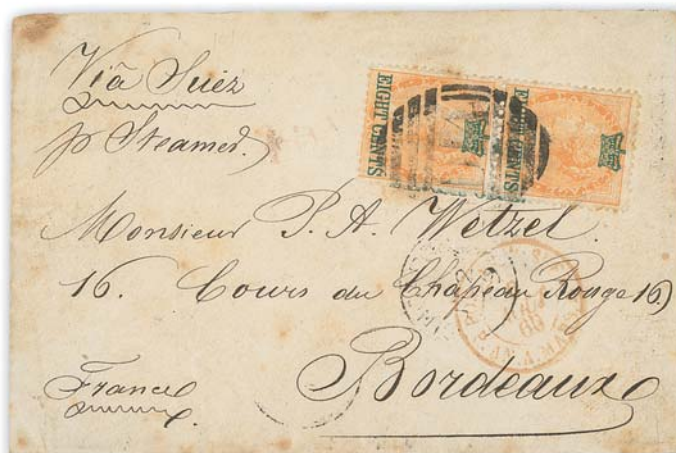 Viâ Suez
p Steamer.
EIGHT CENTS
CENTS
Monsieur P. A. Wetzel.
16. Cours du Chapeau Rouge 16)
Bordeaux
France